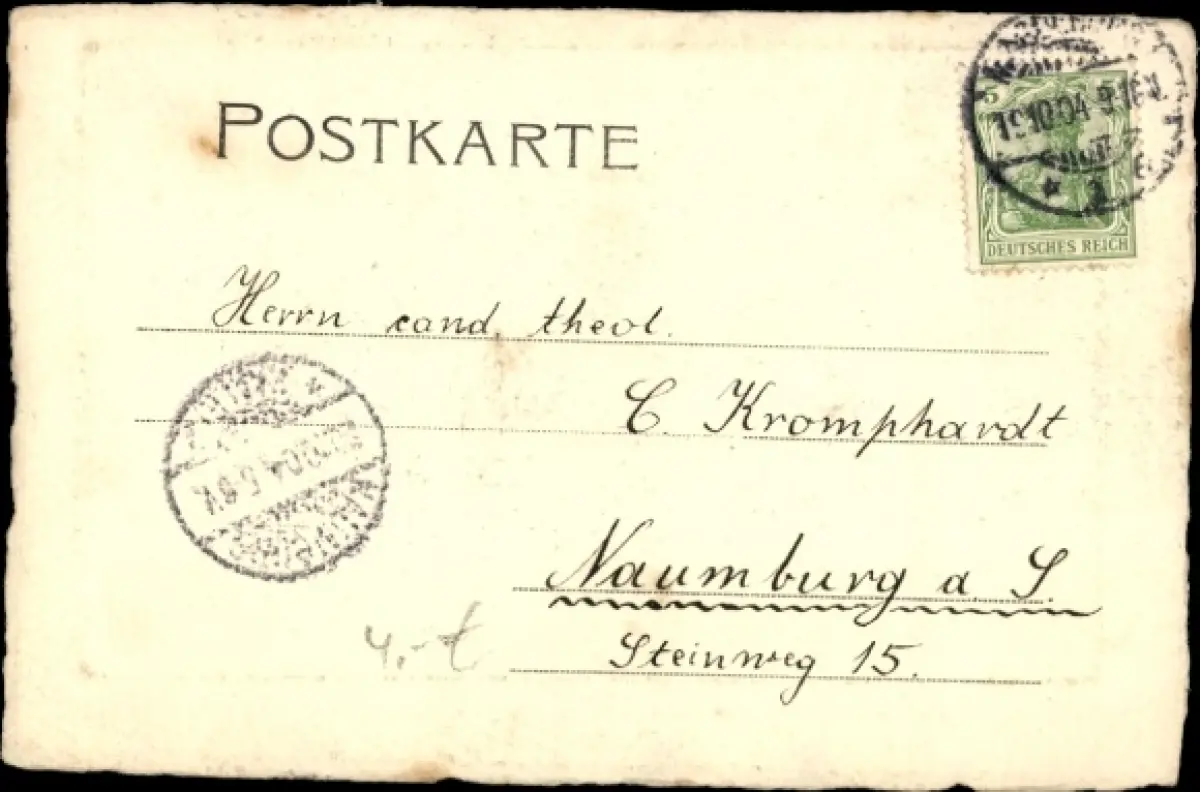 POSTKARTE
5 5
DEUTSCHES REICH
Herrn cand. theol.
C. Kromphardt
Naumburg a. S.
Steinweg 15.
4.-